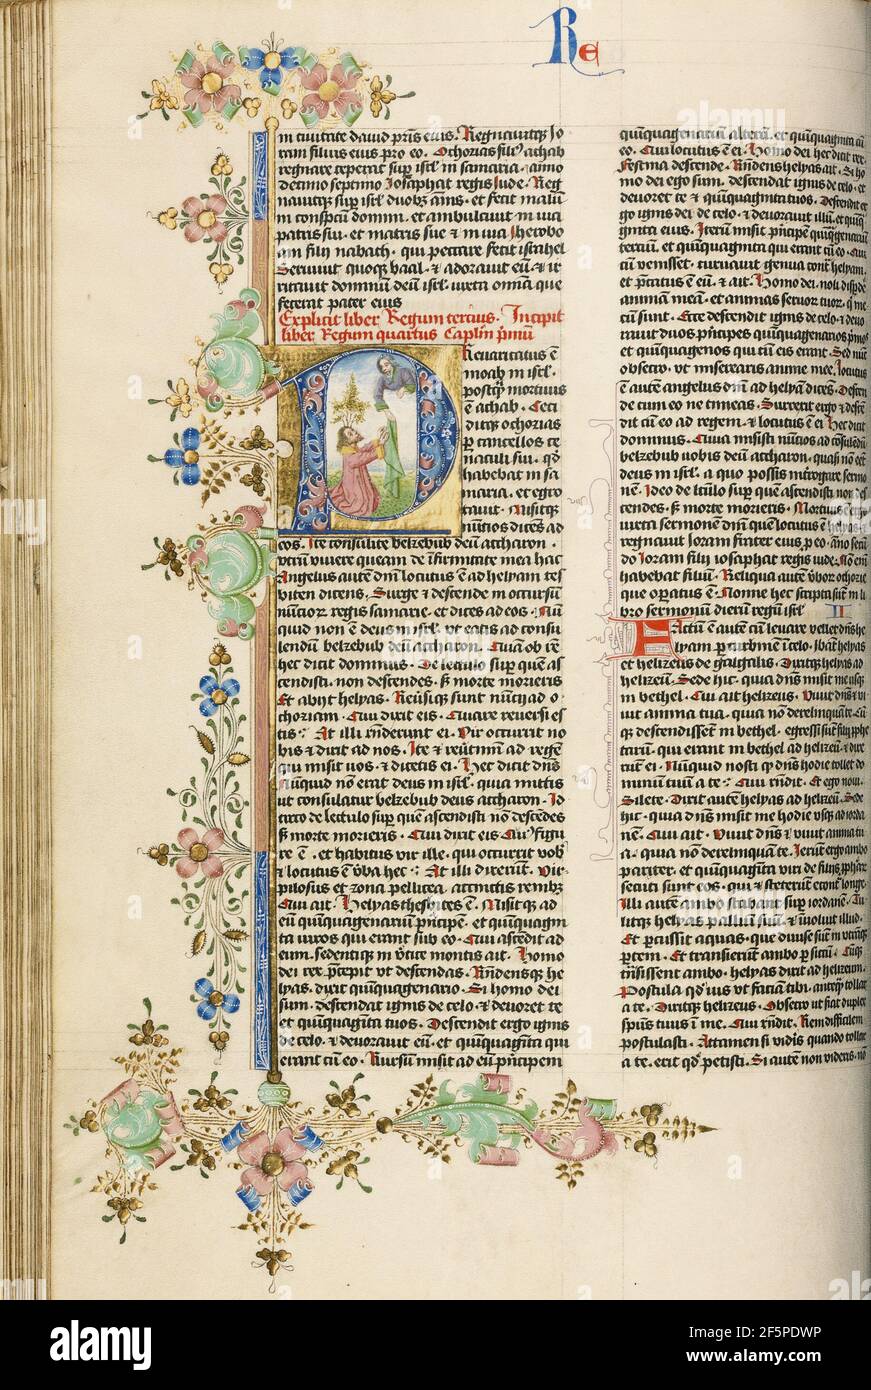 Re
in civitate david pr̃is eius. Regnavitq̃ Jo
ram filius eius pro eo. Ochozias fili9 achab
regnare ceperat sup̃ isr̃l in samaria. anno
decimo septimo Josaphat regis Jude. Reg
navitq̃ sup̃ isr̃l duob9 ãnis. et fecit malũ
in conspectu domini. et ambulavit in via
patris sui. et matris sue et in via iherobo
am filij nabath. qui peccare fecit israhel
Servivit quoq̃ baal. et adoravit eũ. et ir
ritavit dominũ deũ isr̃l. iuxta omnia que
fecerat pater eius
Explicit liber Regum tercius. Incipit
liber Regum quartus Caplm̃ p̃imũ
Revaricatus ẽ
moab in isr̃l.
postq̃ mortuus
ẽ achab. Ceci
ditq̃ ochozias
p̃ cancellos ce
naculi sui. q̃d
habebat in sa
maria. et egro
tavit. Misitq̃
nũcios dicẽs ad
eos. Ite consulite belzebub deũ accharon.
vtrũ vivere queam de ĩfirmitate mea hac
Angelus autẽ dñi locutus ẽ ad helyam tes
biten dicens. Surge et descende in occursũ
nũcior regis samarie. et dices ad eos. Nũ
quid non ẽ deus in isr̃l. ut eatis ad consu
lendũ belzebub deũ accharon. Quã ob rẽ
hec dicit dominus. De lectulo sup̃ quẽ as
cendisti. non descendes. s̃ morte morieris
Et abijt helyas. Reũsiq̃ sunt nũcij ad o
choziam. Qui dixit eis. Quare reversi es
tis. At illi rñderunt ei. Vir occurrit no
bis et dixit ad nos. Ite et reũtimĩ ad regẽ
qui misit vos. et dicetis ei. Hec dicit dñs
Nũquid non erat deus in isr̃l. quia mittis
ut consulatur belzebub deus accharon. Id
circo de lectulo sup̃ quẽ ascendisti nõ descẽdes
s̃ morte morieris. Qui dixit eis Cui9 figu
re ẽ. et habitus vir ille. qui occurrit vob̃
et locutus ẽ ṽba hec. At illi dixerũt. Vir
pilosus et zona pellicea accinctis renib9
Qui ait. Helyas thesbites ẽ. Misitq̃ ad
eũ quĩquagenariũ p̃ncipẽ. et quĩquagin
ta viros qui erant sub eo. Qui ascẽdit ad
eum. sedentiq̃ in ṽtice montis ait. Homo
dei rex p̃cepit vt descendas. Rñdensq̃ he
lyas. dixit quĩquagenario. Si homo dei
sum. descendat ignis de celo. et devoret te
et quĩquagĩta tuos. Descendit ergo ignis
de celo. et devoravit eũ. et quĩquagĩta qui
erant cũ eo. Rursum misit ad eũ p̃ncipem
quĩquagenariũ alterũ. et quĩquaginta cũ
eo. Qui locutus ẽ ei. Homo dei hec dicit rex
Festina descende. Rñdens helyas ait. Si ho
mo dei ego sum. descendat ignis de celo. et
devoret te et quĩquaginta tuos. Descendit er
go ignis dei de celo. et devoravit illũ. et quĩq̃
ginta eius. Iterũ misit p̃ncipẽ quĩq̃genariũ
tercium. et quĩquagĩta qui erant cũ eo. Qui
cũ venisset. curvavit genua cont̃ helyam.
et p̃catus ẽ eũ. et ait. Homo dei. noli dispic̃e
animam meã. et animas servor tuor. q̃ me
cũ sunt. Ecce descendit ignis de celo. et devo
ravit duos p̃ncipes quĩquagenarios p̃mos
et quĩquagenos qui cũ eis erant. Sed nũc
obsecro. vt miserearis anime mee. Locutus
ẽ autẽ angelus dñi ad helyã dicẽs. Descẽn
de cum eo ne timeas. Surrexit ergo et descẽ
dit cũ eo ad regem. et locutus ẽ ei Hec dicit
dominus. Quia misisti nũcios ad cõsulendũ
belzebub deũ accharon. quasi nõ eẽt
deus in isr̃l. a quo possis int̃rogare sermo
nẽ. Ideo de lc̃tulo sup̃ quẽ ascendisti non des
cendes. s̃ morte morieris. Mortuus ẽ ergo
iuxta sermonẽ dñi quẽ locutus ẽ helyas. et
regnavit Joram frater eius p̃ eo. ãno secũ
do Joram filij iosaphat regis iude. Nõ eĩ
habebat filiũ. Reliqua autẽ ṽbor ochozie
que op̃atus ẽ. Nonne hec scripta sũt in li
bro sermonũ dierũ regũ isr̃l II
Factũ ẽ autẽ cũ levare vellet dñs he
lyam p̃ turbinem ĩ celo. ibãt helyas
et helizeus de galgalis. Dixitq̃ helyas ad
helizeũ. Sede hic. quia dñs misit me usq̃
in bethel. Cui ait helizeus. Vivit dñs et vi
vit anima tua. quia non derelinquã te. Cũ
q̃ descendissent in bethel. egressi sũt filij p̃phe
tarũ. qui erant in bethel ad helizeũ. et dixe
runt ei. Nũquid nosti q̃ dñs hodie tollet do
minũ tuũ a te. Qui rñdit. Et ego novi.
Silete. Dixit autẽ helyas ad helizeũ. Sede
hic. quia dñs misit me vsq̃ ad iorda
nẽ. Qui ait. Vivit dñs et vivit anima tu
a. quia non derelinquã te. Ierũt ergo ambo
pariter. et quĩquagĩta viri de filijs p̃phar̃
secuti sunt eos. qui et steterũt econt̃ longe.
Illi autẽ ambo stabant sup̃ iordanẽ. Tu
litq̃ helyas palliũ suũ. et ĩvoluit illud.
Et p̃cussit aquas. que divise sũt in vtrãq̃
p̃tem. Et transierũt ambo p̃ siccũ. Cũq̃
t̃nsissent ambo. helyas dixit ad helizeum.
Postula q̃d vis vt faciã tibi. anteq̃ tollar
a te. Dixitq̃ helizeus. Obsecro ut fiat duplex
sp̃us tuus ĩ me. Qui rñdit. Rem difficilem
postulasti. Attamen si vid̃is quando tollar
a te. erit q̃d petisti. Si autẽ non videris. nõ
alamy
Image ID: 2F5PDWP
www.alamy.com